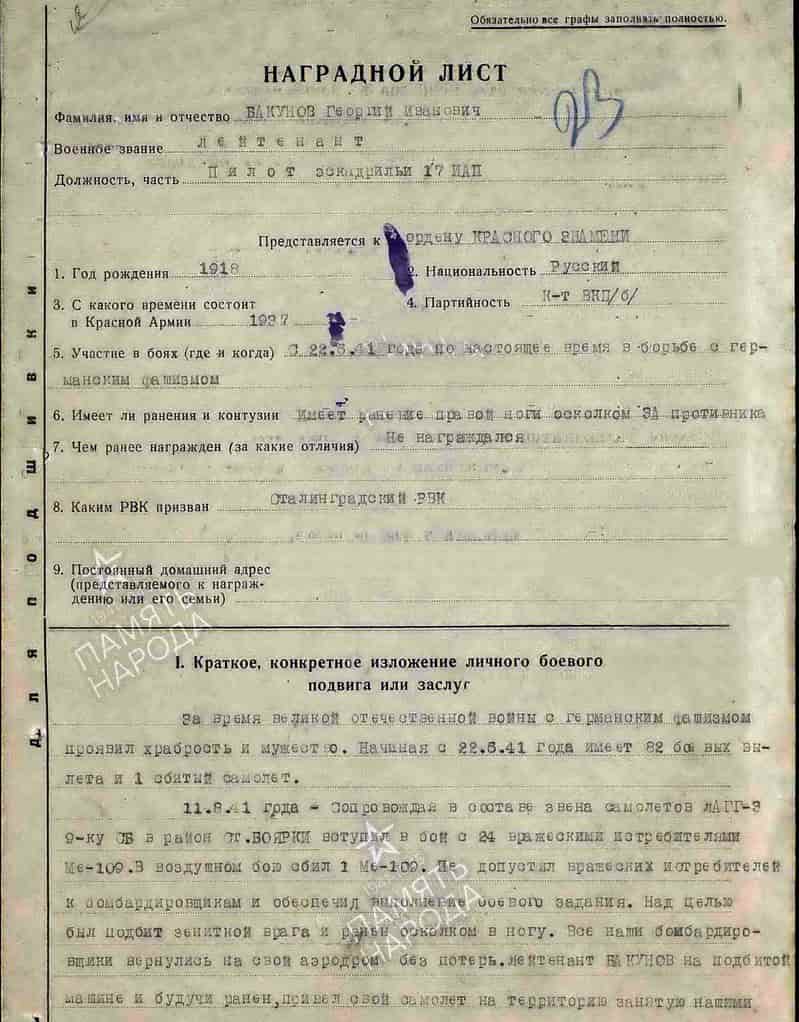 Обязательно все графы заполнять полностью.
НАГРАДНОЙ ЛИСТ
Фамилия, имя и отчество БАКУНОВ Георгий Иванович
Военное звание лейтенант
Должность, часть Пилот эскадрильи 17 ИАП
Представляется к ордену КРАСНОГО ЗНАМЕНИ
1. Год рождения 1918 2. Национальность Русский
3. С какого времени состоит 4. Партийность К-т ВКП/б/
в Красной Армии 1937
5. Участие в боях (где и когда) С 22.6.41 года по настоящее время в борьбе с гер-
манским фашизмом
6. Имеет ли ранения и контузии Имеет ранение правой ноги осколком ЗА противника
7. Чем ранее награжден (за какие отличия) Не награждался
8. Каким РВК призван Сталинградский РВК
9. Постоянный домашний адрес
(представляемого к награж-
дению или его семьи)
Для подшивки
I. Краткое, конкретное изложение личного боевого
подвига или заслуг
За время великой отечественной войны с германским фашизмом
проявил храбрость и мужество. Начиная с 22.6.41 года имеет 82 боевых вы-
лета и 1 сбитый самолет.
11.8.41 года - Сопровождая в составе звена самолетов ЛАГГ-3
9-ку СБ в район ст.БОЯРКИ вступил в бой с 24 вражескими истребителями
Ме-109.В воздушном бою сбил 1 Ме-109. Не допустил вражеских истребителей
к бомбардировщикам и обеспечил выполнение боевого задания. Над целью
был подбит зениткой врага и ранен осколком в ногу. Все наши бомбардиро-
вщики вернулись на свой аэродром без потерь.Лейтенант БАКУНОВ на подбитой
машине и будучи ранен,привел свой самолет на территорию занятую нашими
ПАМЯТЬ
НАРОДА
ПАМЯТЬ
НАРОДА